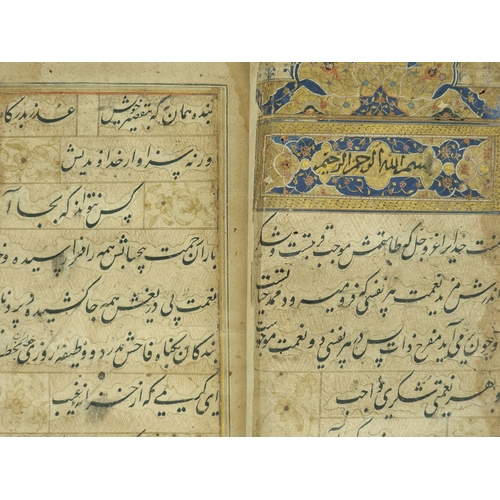 بسم الله الرحمن الرحیم
منت خدایرا عز و جل که طاعتش موجب قربتست و بشکر
اندرش مزید نعمت هر نفسی که فرو میرود ممد حیاتست
و چون بر می آید مفرح ذات پس در هر نفسی دو نعمت موجودست
و بر هر نعمتی شکری واجب
بنده همان به که بتقصیر خویش عذر بدرگاه
ورنه سزاوار خداوندیش
کس نتواند که بجا آ
باران رحمت بیحسابش همه را فرا رسیده و خو
نعمت بی دریغش همه جا کشیده در پرده نا
بندگان بگناه فاحش ندرد و وظیفه روزی
ای کریمی که از خزانه غیب